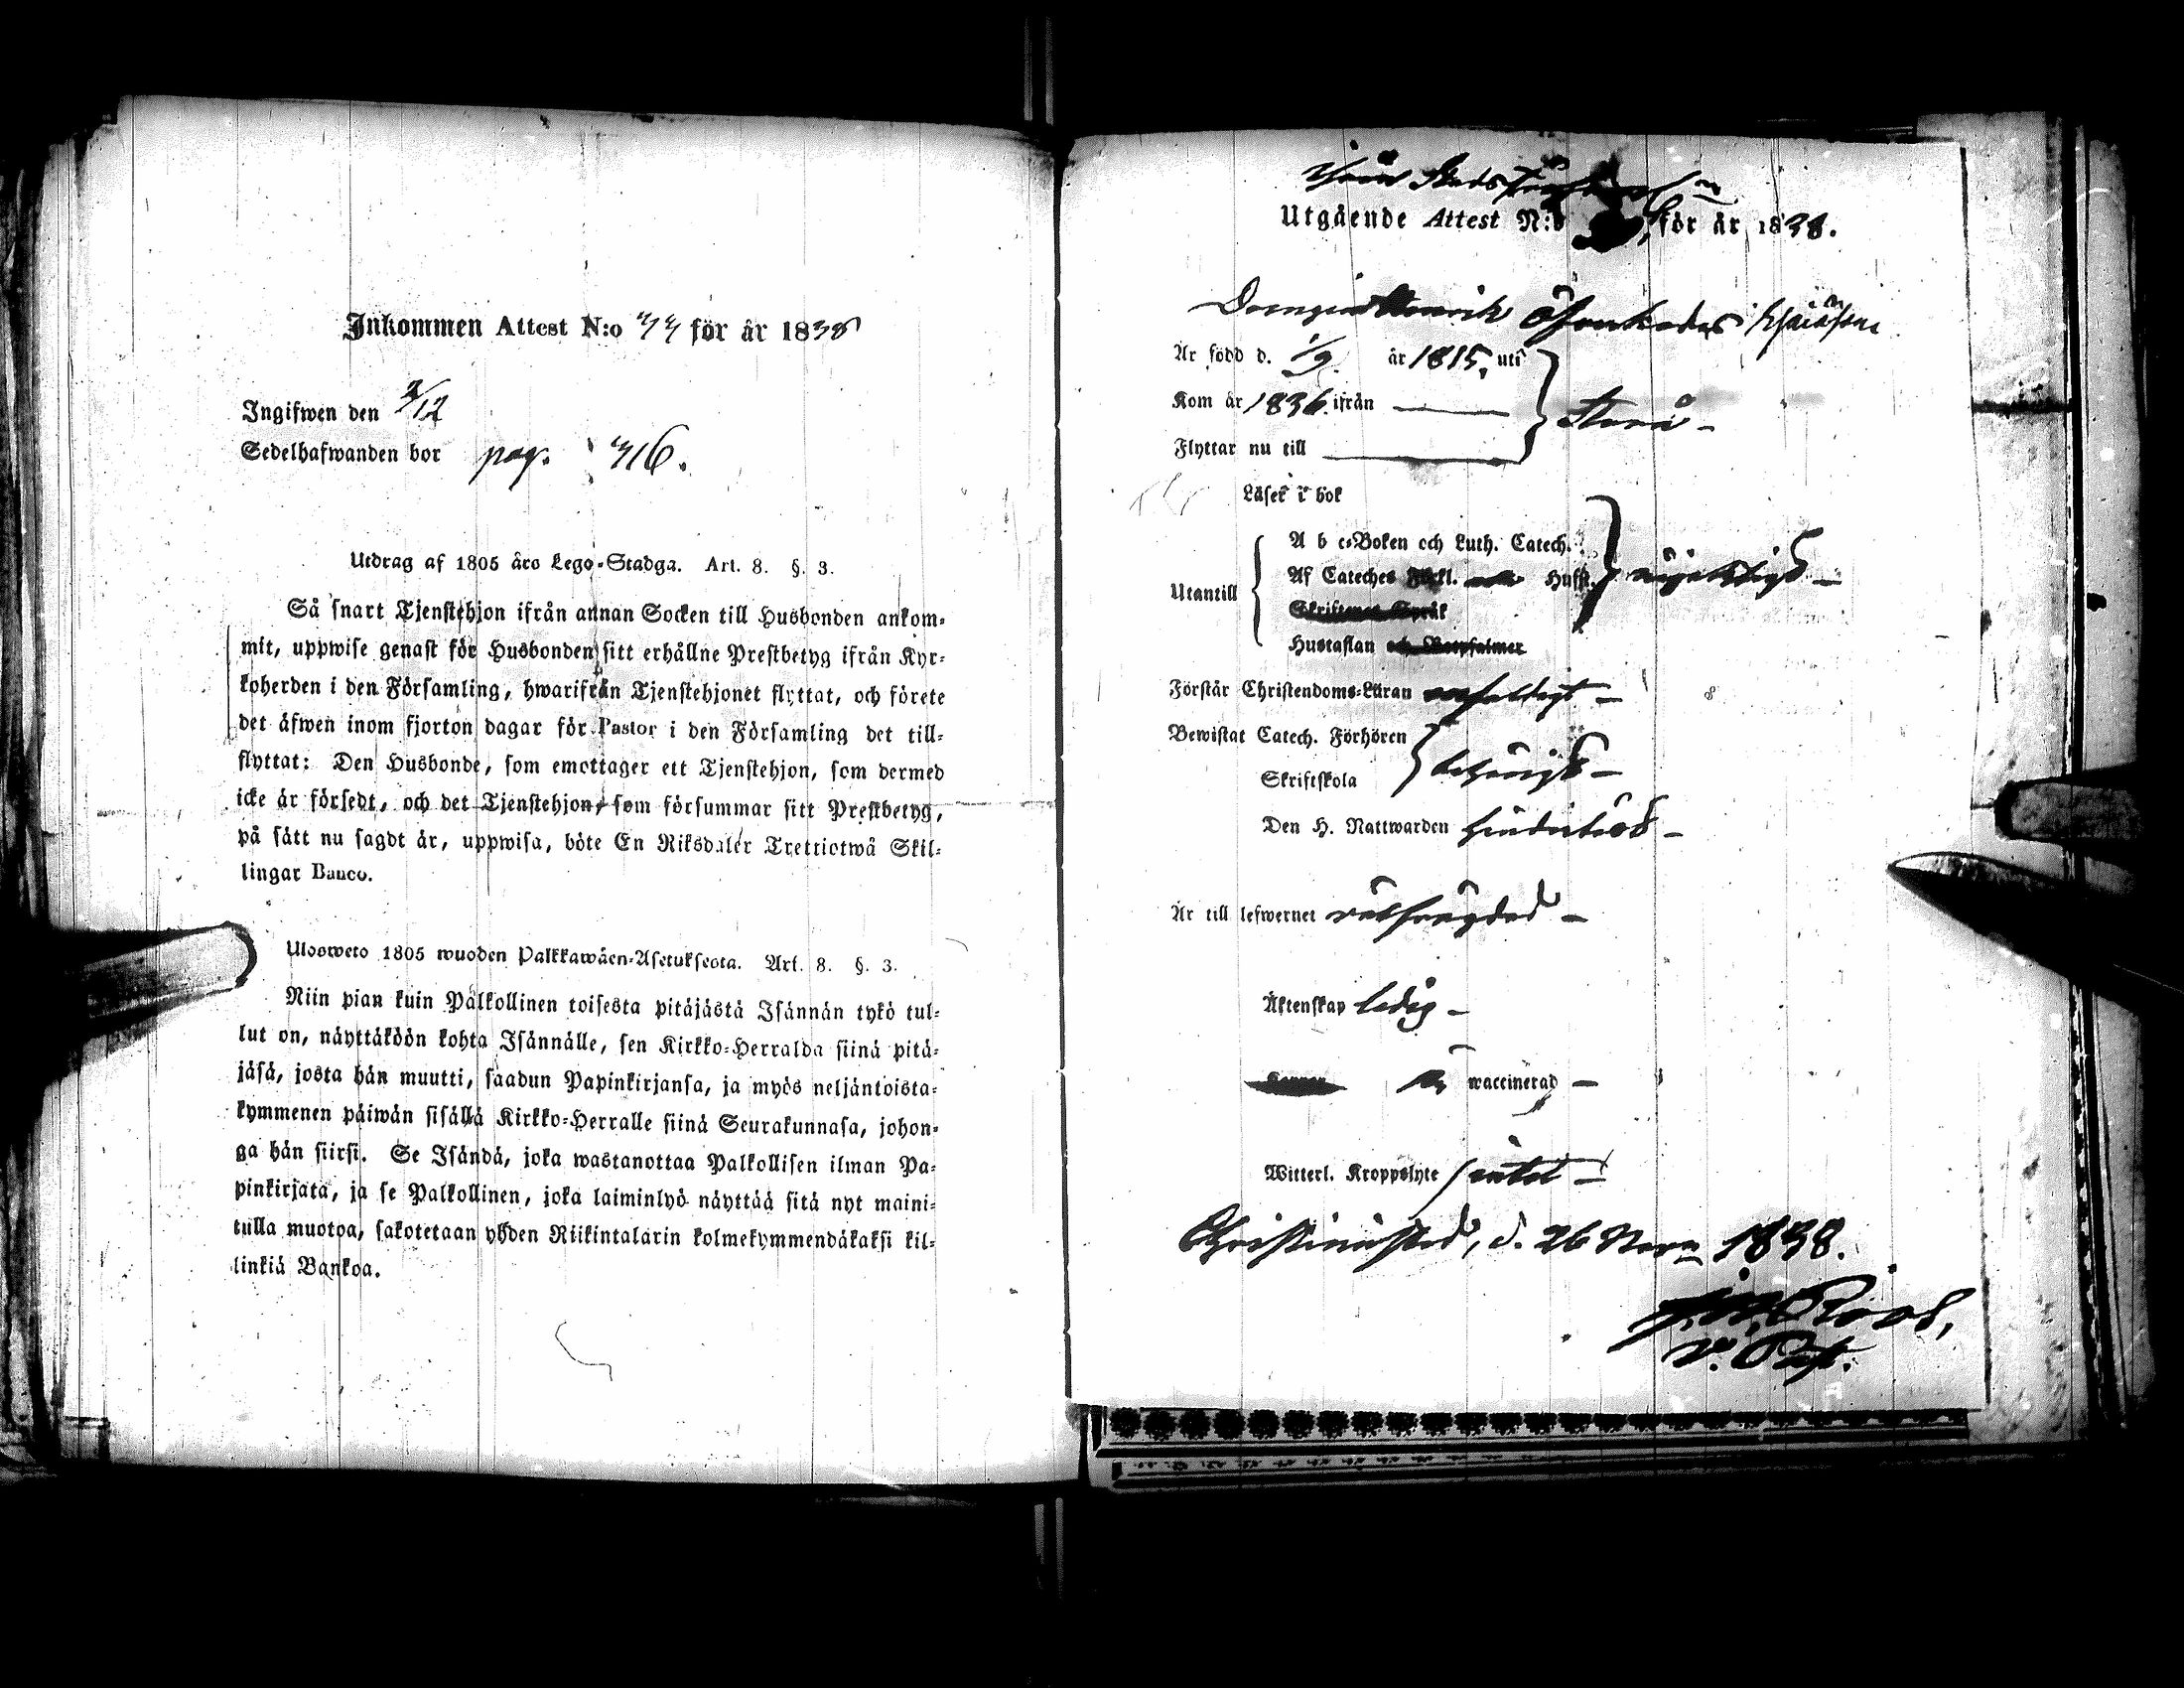 Inkommen Attest N:o 44 för år 1838
Ingifwen den 2/12
Sedelhafwanden bor pag. 416.
Utdrag af 1805 års Lego-Stadga. Art. 8. §. 3.
Så snart Tjenstehjon ifrån annan Socken till Husbonden ankom-
mit, uppwise genast för Husbonden sitt erhållne Prestbetyg ifrån Kyr-
koherden i den Församling, hwarifrån Tjenstehjonet flyttat, och förete
det äfwen inom fjorton dagar för Pastor i den Församling det till-
flyttat: Den Husbonde, som emottager ett Tjenstehjon, som dermed
icke är försedt, och det Tjenstehjon, som försummar sitt Prestbetyg,
på sätt nu sagdt är, uppwisa, böte En Riksdaler Trettiotwå Skil-
lingar Banco.
Ulosweto 1805 wuoden Palkkawäen-Asetuksesta. Art. 8. §. 3.
Niin pian kuin Palkollinen toisesta pitäjästä Isännän tykö tul-
lut on, näyttäköön kohta Isännälle, sen Kirkko-Herralda siinä pitä-
jäsä, josta hän muutti, saadun Papinkirjansa, ja myös neljäntoista-
kymmenen päiwän sisällä Kirkko-Herralle siinä Seurakunnasa, johon-
ga hän siirsi. Se Isändä, joka wastanottaa Palkollisen ilman Pa-
pinkirjata, ja se Palkollinen, joka laiminlyö näyttää sitä nyt maini-
tulla muotoa, sakotetaan yhden Riikintalarin kolmekymmendäkaksi kil-
linkiä Bankoa.
Utgående Attest N:o för år 1838.
Drengen Henrik
Är född d. 1/9 år 1815, uti
Kom år 1836 ifrån
Storå
Flyttar nu till
Läser i bok
A b c-Boken och Luth. Catech.
Utantill
Af Cateches Förkl. Husft.
Skriftenes Språk
Hustaflan och Botpsalmer
nöjaktigt
Förstår Christendoms-Läran
Bewistat Catech. Förhören
Skriftskola
behörigt
Den H. Nattwarden hinderlös
Är till lefwernet välfrägdad
Äktenskap ledig
Koppor waccinerad
Witterl. Kroppslyte intet
Christinestad, d. 26 Novr 1838.
Roos,
v. Past.